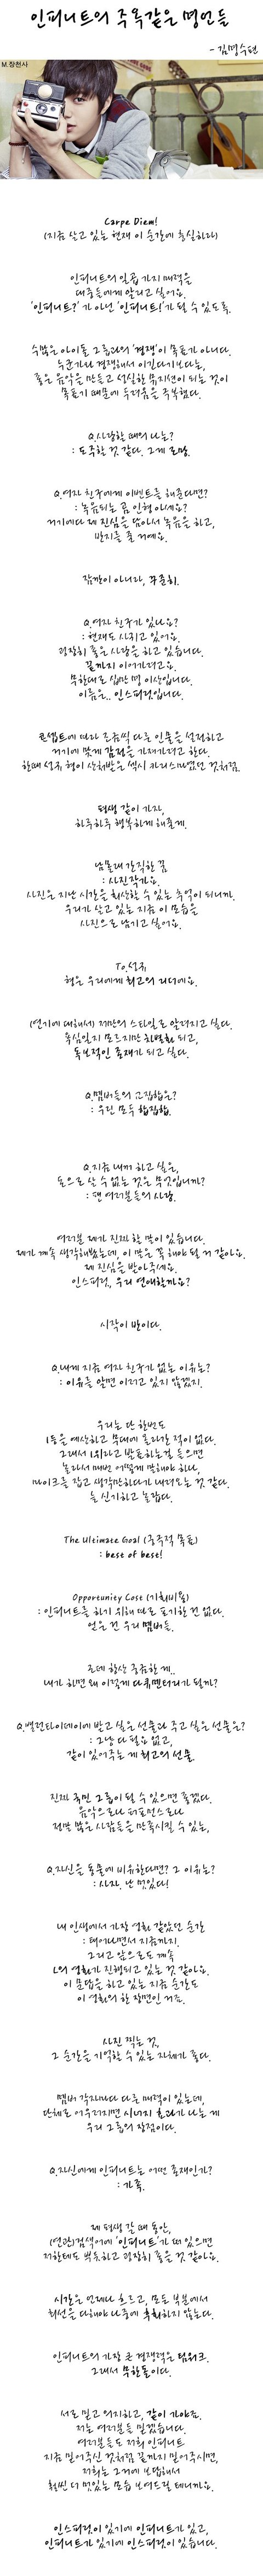 인피니트의 주옥같은 명언들
- 김명수편
M.장천사
Carpe Diem!
(지금 살고 있는 현재 이 순간에 충실하라)
인피니트의 일곱 가지 매력을
대중들에게 알리고 싶어요.
'인피니트?' 가 아닌 '인피니트!'가 될 수 있도록.
수많은 아이돌 그룹과의 '경쟁'이 목표가 아니다.
누군가와 경쟁해서 이긴다기보다는,
좋은 음악을 만들고 성실한 뮤지션이 되는 것이
목표기 때문에 두려움을 극복했다.
Q.사랑할 때의 나는?
: 도죽할 것 같다. 그게 로망.
Q.여자 친구에게 이벤트를 해준다면?
: 녹음되는 곰 인형 아세요?
거기에다 제 진심을 담아서 녹음을 하고,
반지를 줄 거예요.
잠깐이 아니라, 꾸준히.
Q.여자 친구가 있나요?
: 현재도 사귀고 있어요.
굉장히 좋은 사랑을 하고 있습니다.
끝까지 이어가려고요.
무한대로 십만 명 이상입니다.
이름은.. 인스피릿입니다.
콘셉트에 따라 조금씩 다른 인물을 설정하고
거기에 맞게 감정을 가져가려고 한다.
한때 성규 형이 상처받은 섹시 카리스마였던 것처럼.
평생 같이 가자,
하루하루 행복하게 해줄게.
남몰래 간직한 꿈
: 사진작가요.
사진은 지난 시간을 회상할 수 있는 추억이 되니까.
우리가 살고 있는 지금 이 모습을
사진으로 남기고 싶어요.
To.성규
형은 우리에게 최고의 리더예요.
(연기에 대해서) 저만의 스타일로 알려지고 싶다.
욕심일지 모르지만 차별화 되고,
독보적인 존재가 되고 싶다.
Q.멤버들의 고집합은?
: 우린 모두 합집합.
Q.지금 내가 하고 싶은,
돈으로 살 수 없는 것은 무엇입니까?
: 팬 여러분들의 사랑.
여러분 제가 진짜 할 말이 있습니다.
제가 계속 생각해봤는데, 이 말은 꼭 해야 될 거 같아요.
제 진심을 받아주세요.
인스피릿, 우리 연애할까요?
시작이 반이다.
Q.내게 지금 여자 친구가 없는 이유는?
: 이유를 알면 이러고 있지 않겠지.
우리는 단 한번도
1등을 예상하고 무대에 올라간 적이 없다.
그래서 1위라고 발표하는걸 들으면
놀라서 매번 어떻게 말해야 하나,
마이크를 잡고 생각만하다가 내려오는 것 같다.
늘 신기하고 놀랍다.
The Ultimate Goal (궁극적 목표)
: best of best!
Opportunity Cost (기회비용)
: 인피니트를 하기 위해 따로 포기한 건 없다.
얻은 건 우리 멤버들.
근데 항상 궁금한 게..
내가 하면 왜 이렇게 다큐멘터리가 될까?
Q.밸런타인데이에 받고 싶은 선물과 주고 싶은 선물은?
: 그냥 다 필요 없고,
같이 있어주는 게 최고의 선물.
진짜 국민 그룹이 될 수 있으면 좋겠다.
음악으로나 퍼포먼스로나
정말 많은 사람들을 만족시킬 수 있는,
Q.자신을 동물에 비유한다면? 그 이유는?
: 사자. 난 멋있다!
내 인생에서 가장 영화 같았던 순간
: 태어나면서 지금까지.
그리고 앞으로도 계속
L의 영화가 진행되고 있는 것 같아요.
이 문답을 하고 있는 지금 순간도
이 영화의 한 장면인 거죠.
사진 찍는 것,
그 순간을 기억할 수 있는 자체가 좋다.
멤버 각자마다 다른 매력이 있는데,
단체로 어우러지면 시너지 효과가 나는 게
우리 그룹의 장점이다.
Q.자신에게 인피니트는 어떤 존재인가?
: 가족.
제 평생 갈 때 동안,
(연관)검색어에 '인피니트'가 떠 있으면
저한테도 뿌듯하고 굉장히 좋을 것 같아요.
시간은 언제나 흐르고, 모든 부분에서
최선을 다해야 나중에 후회하지 않는다.
인피니트의 가장 큰 경쟁력은 팀워크.
그래서 무한돌이다.
서로 믿고 의지하고, 같이 가야죠.
저는 여러분을 믿겠습니다.
여러분들도 저희 인피니트
지금 믿어주신 것처럼 끝까지 믿어주시면,
저희는 그거에 보답해서
훨씬 더 멋있는 모습 보여드릴 테니까요.
인스피릿이 있기에 인피니트가 있고,
인피니트가 있기에 인스피릿이 있습니다.